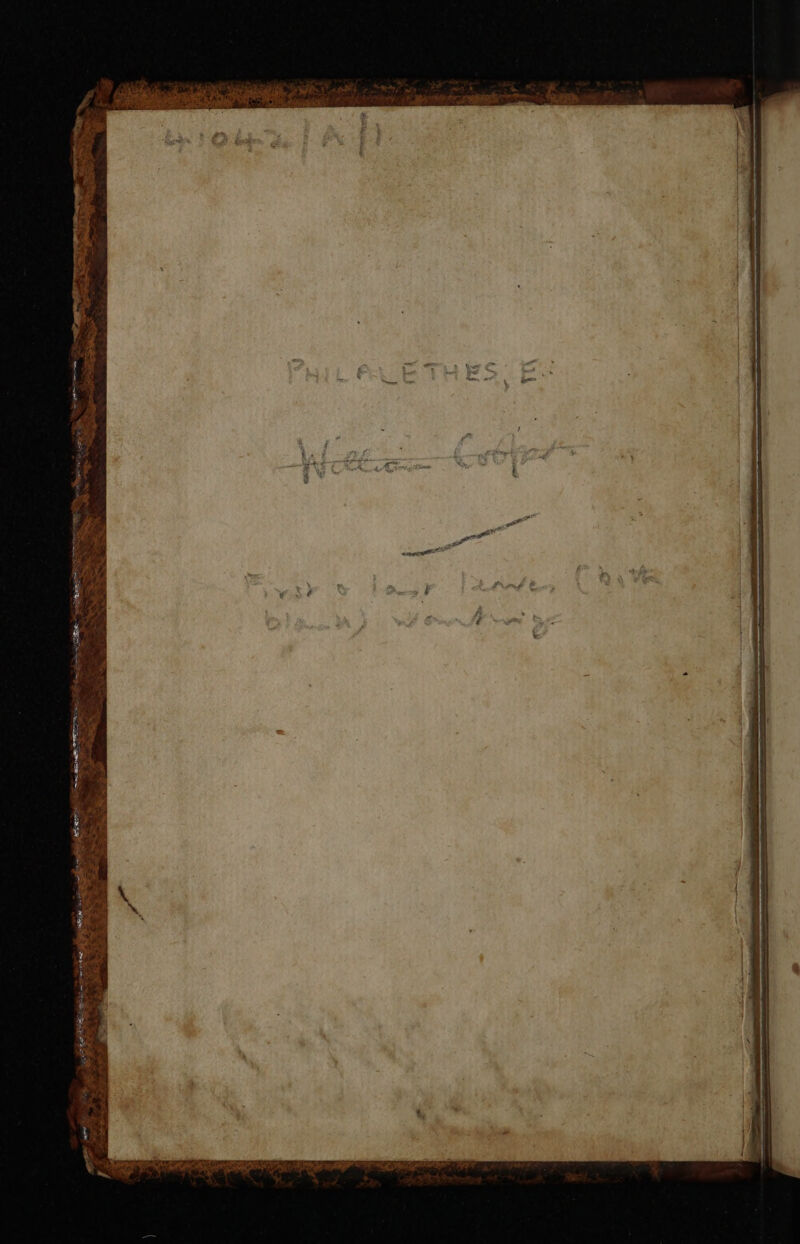 41042/A/1
PHILALETHES, E.
William Cooper
First & last leaves (both
blank) wanting